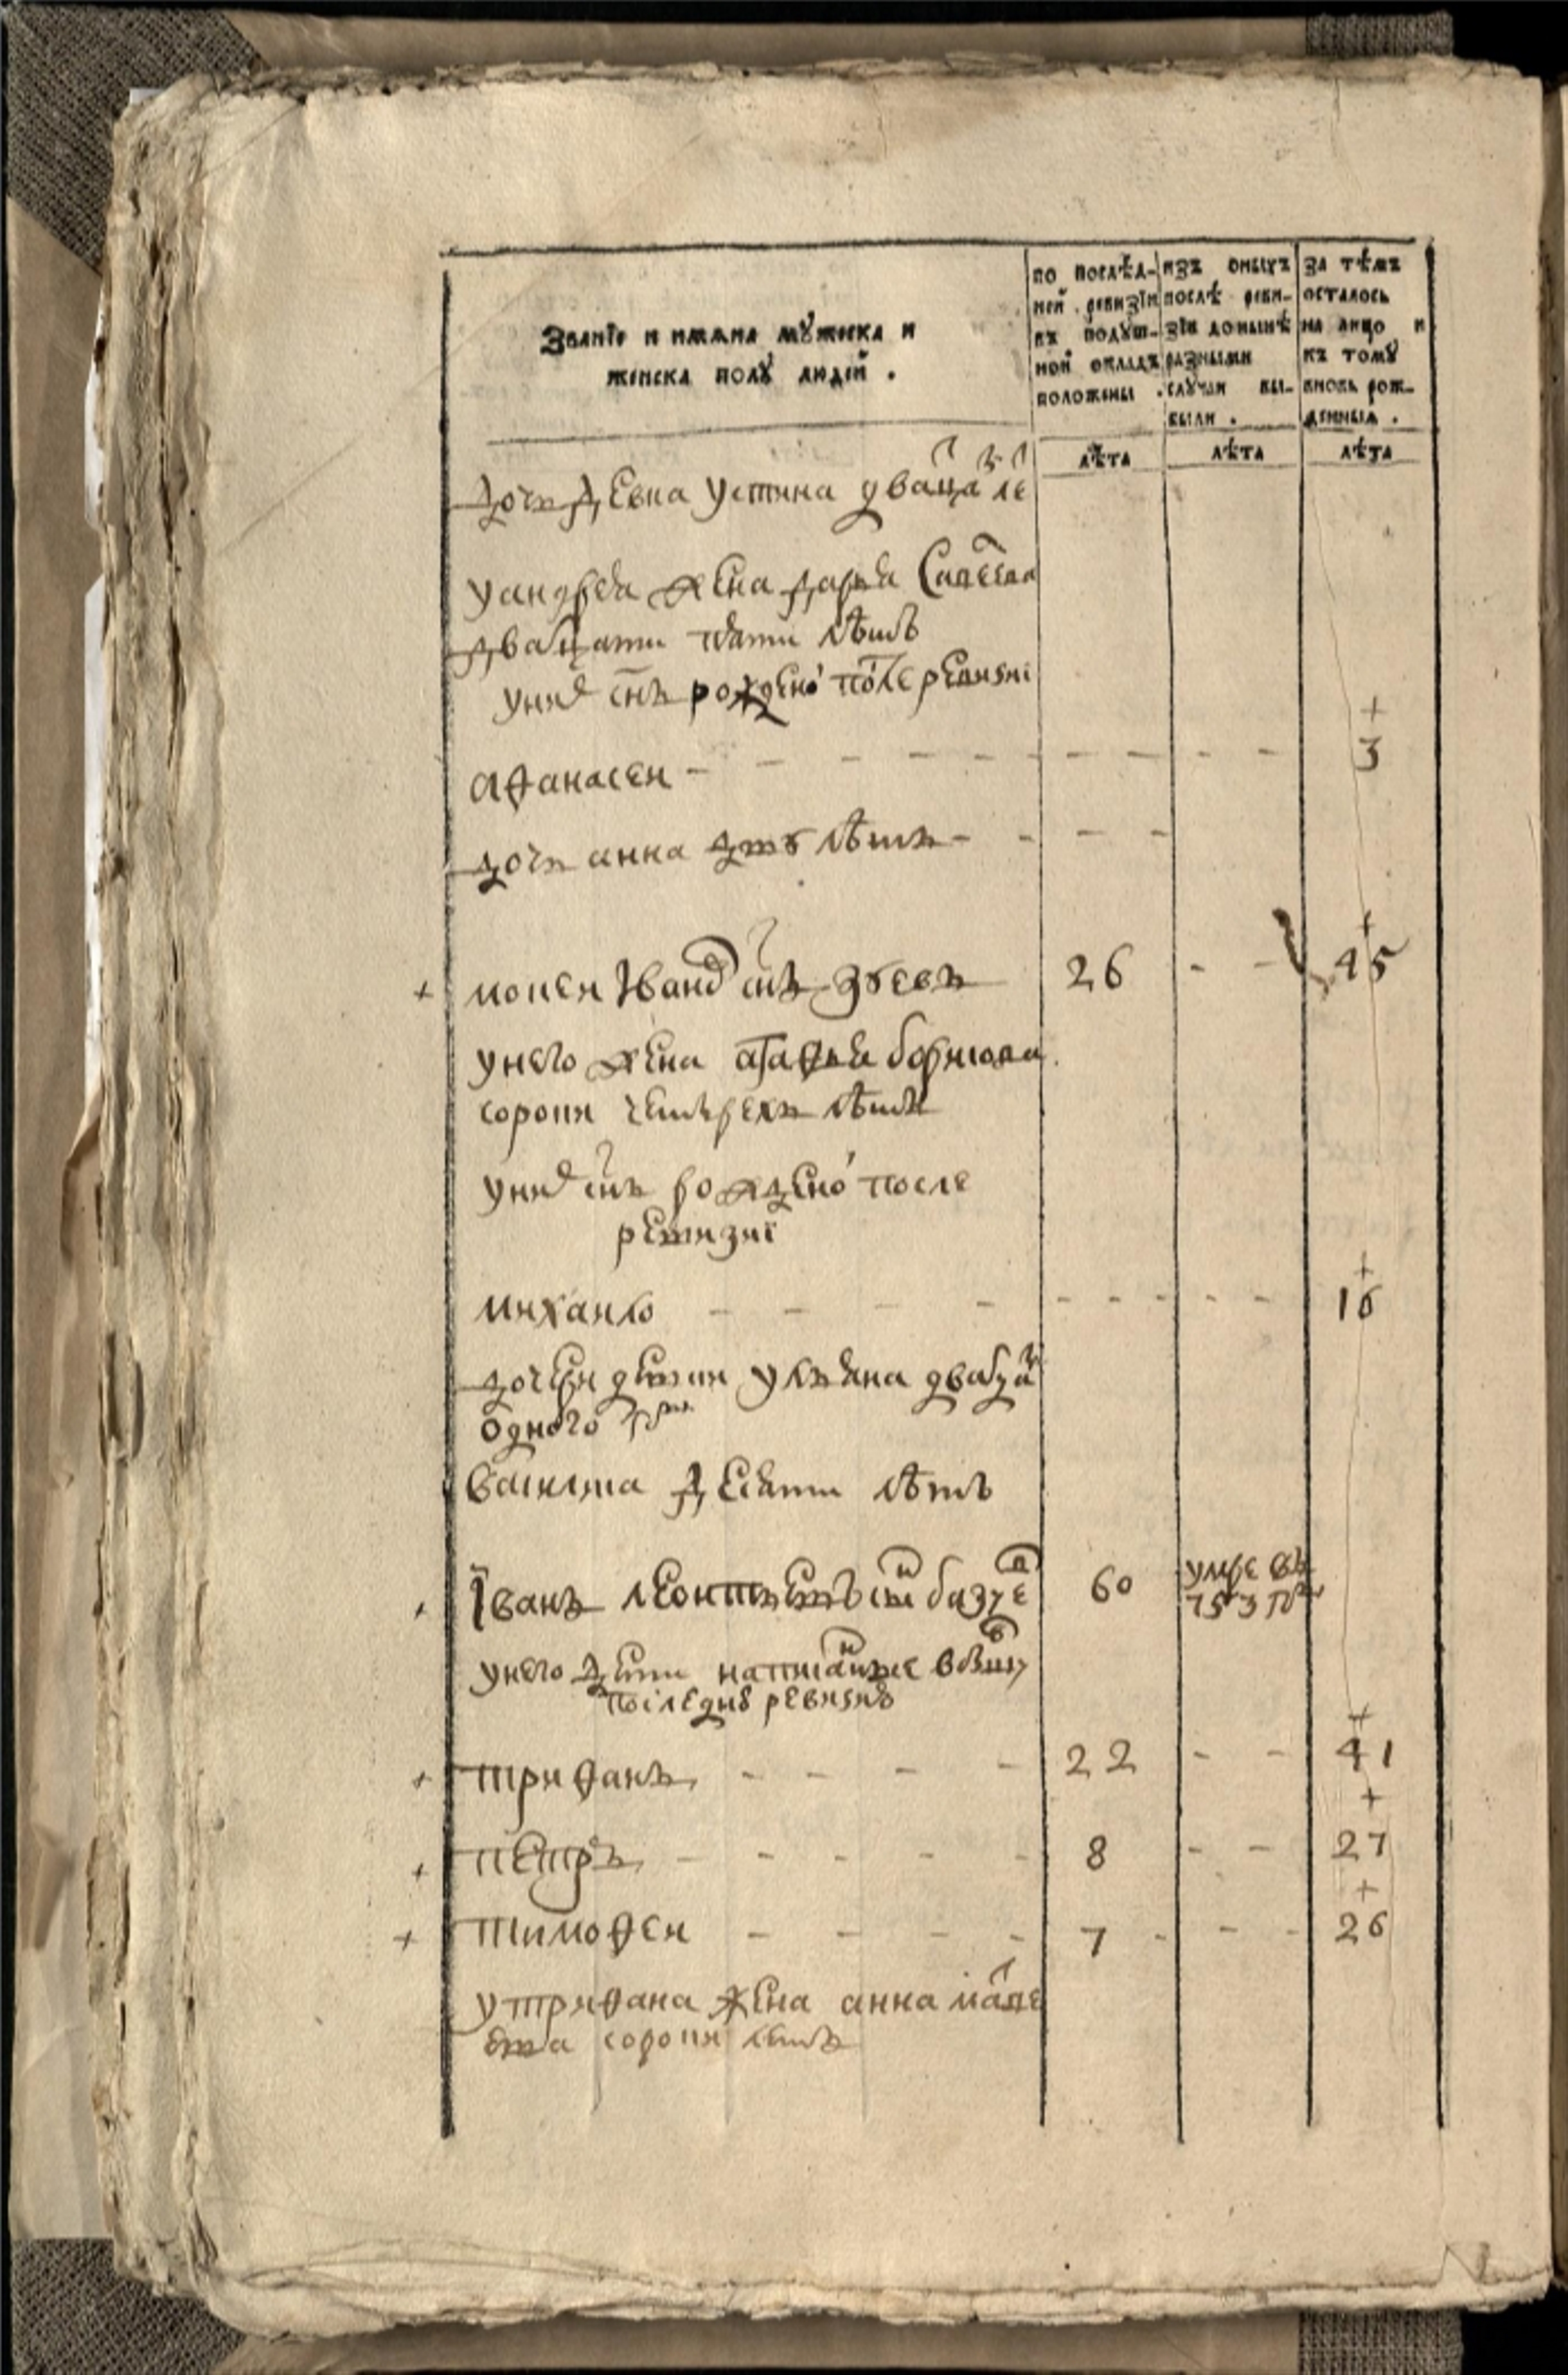 Званїе и имѧна мꙋжеска и
женска полꙋ людей .
по послѣд-
ней ревизїи
въ подꙋш-
ной окладъ
положены .
изъ оныхъ
послѣ реви-
зїи донынѣ
разными
слꙋчаи вы-
были .
за тѣмъ
осталось
на лицо и
къ томꙋ
вновь рож-
денныя .
лѣта
лѣта
лѣта
дочь девка устина
уандрея жена дарья
двадцати пяти лѣтъ
уних снъ рожденой после ревизиі
+
афанасеи - - - - - - - - - 3
дочь анна дву лѣтъ - - - -
+
+ мокеи Іванов снъ зуевъ 26 - - 45
унего жена агафья
сороки четырехъ лѣтъ
уних снъ рожденой после
ревизиі
+
михаило - - - - - - - - - - 16
дочери девки ульяна двадцати
одного году
василиса десяти лѣтъ
Їванъ леонтьевъ снъ 60 умре въ
763 году
унего дети написанные в
последнюю ревизию
+
+ трифанъ - - - - 22 - - 41
+
+ петръ - - - - - 8 - - 27
+
+ тимофеи - - - - 7 - - - 26
утрифана жена анна
сороки летъ